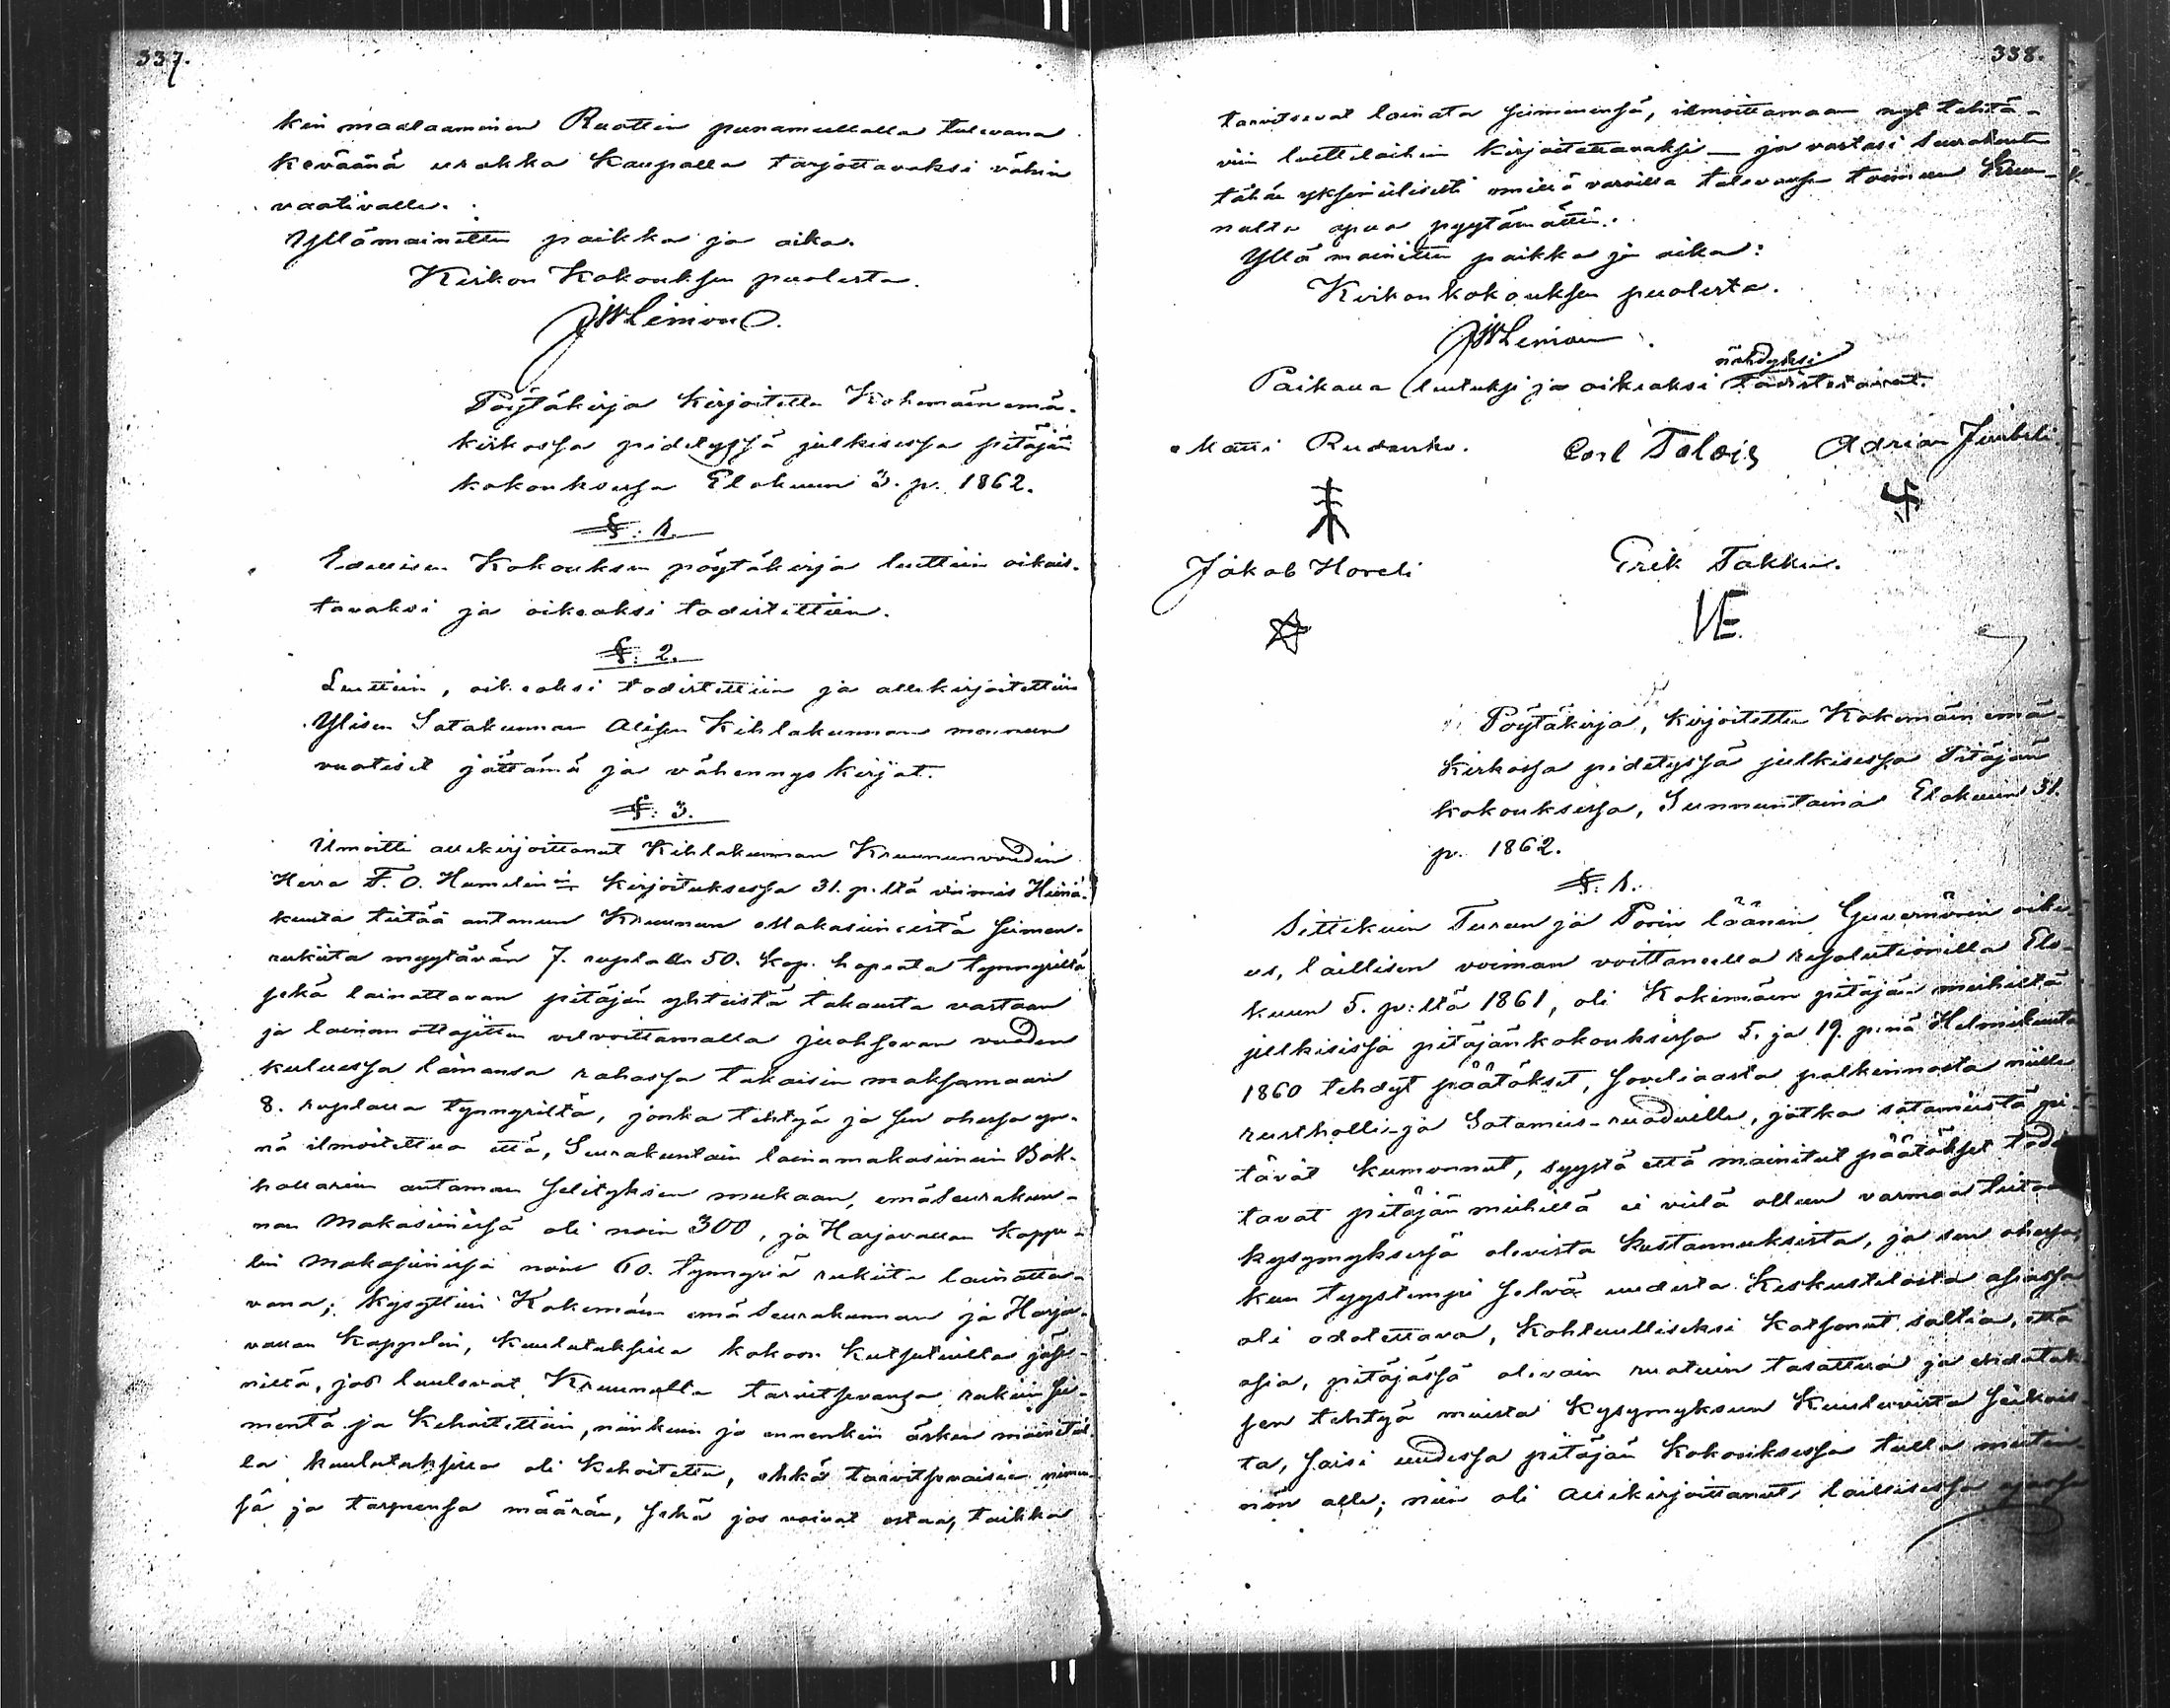 337.
kin maalaaminen Ruottin punamullalla tulevana
keväänä urakka kaupalla tarjottavaksi vähin
vaativalle.
Yllämainittu paikka ja aika.
Kirkon Kokouksen puolesta.
JWLeinou
Pöytäkirja kirjoitettu Kokemäen emä-
kirkossa pidetyssä julkisessa pitäjän
kokouksessa Elokuun 3. p. 1862.
§: 1.
Edellisen Kokouksen pöytäkirja luettiin oikais-
tavaksi ja oikeaksi todistettiin.
§: 2.
Luettiin, oikeaksi todistettiin ja allekirjoitettiin
Ylisen Satakunnan Alisen Kihlakunnan mennen
vuotiset jättämä ja vähennys kirjat.
§: 3.
Ilmoitti allekirjoittanut Kihlakunnan Kruununvoudin
Herra F. O. Hamelinin kirjoituksessa 31. p. ltä viimis Heinä-
kuuta tietää antanun Kruunun Makasiineistä siemen-
rukiita myytävän 7. ruplalla 50. kop. hopeata tynnyriltä
sekä lainattavan pitäjän yhteistä takausta vastaan
ja lainan ottajitten velvoittamalla juoksevan vuoden
kuluessa lainansa rahassa takaisin maksamaan
8. ruplassa tynnyriltä, jonka tehtyä ja sen ohessa yn-
nä ilmoitettua että, Seurakuntain lainamakasiinein Bok-
hollarin antaman selityksen mukaan, emäseurakun-
nan Makasiinissa oli noin 300, ja Harjavallan Kappe-
lin Makasiinissa noin 60. tynnyriä rukiita lainatta-
vana; kysyttiin Kokemäen emä Seurakunnan ja Harja-
vallan Kappelin, kuulutuksilla kokoon kutsutuilta jäse-
niltä, jos luulevat Kruunulta tarvitsevansa rukiin sie-
mentä ja kehoitettiin, niinkuin jo ennenkin äsken mainitul-
la kuulutuksilla oli kehoitettu, ehkä tarvitsevaisia nimen-
sä ja tarpeensa määrän, sekä jos voivat ostaa, taikka
338.
tarvitsevat lainata siemenensä, ilmoittamaan nyt tehtä-
viin luetteloihin kirjoitettavaksi — ja vastasi Seurakunta
tähän yksimielisesti omilla varoilla tulevansa toimeen Kruu-
nulta apua pyytämättä.
Yllä mainittu paikka ja aika:
Kirkonkokouksen puolesta.
JWLeinou
nähdyksi
Paikalla luetuksi ja oikeaksi todistavat.
Matti Rudanko. Carl Talois Adrian
Jakob Hoveli Erik Takku.
VE
Pöytäkirja, kirjoitettu Kokemäen emä-
Kirkossa pidetyssä julkisessa Pitäjän
kokouksessa, Sunnuntaina Elokuun 31.
p. 1862.
§: 1.
Sittekuin Turun ja Porin läänin Guvernörin oike-
us, laillisen voiman voittaneella resolutionilla Elo-
kuun 5. p:ltä 1861, oli Kokemäen pitäjän miehiltä
julkisissa pitäjänkokouksissa 5. ja 19. p:nä Helmikuuta
1860 tehdyt päätökset, soveliaasta palkinnosta niille
rustholli- ja Satamiis-ruoduille, jotka sotamiestä pi-
tävät kumonnut, syystä että mainitut päätökset
tavat pitäjän miehillä ei vielä olleen varmaa tietoa
kysymyksessä olevista kustannuksista, ja sen ohessa,
kun tyystempi selvä uudesta Keskustelosta asiassa
oli odotettava, kohtuulliseksi katsonut sallia, että
asia, pitäjässä olevain ruotuin tasattua ja ehdotuk-
sen tehtyä muista kysymykseen kuuluvista seikois-
ta, saisi uudessa pitäjän Kokouksessa tulla mietin-
nön alle; niin oli Allekirjoittanut laillisessa